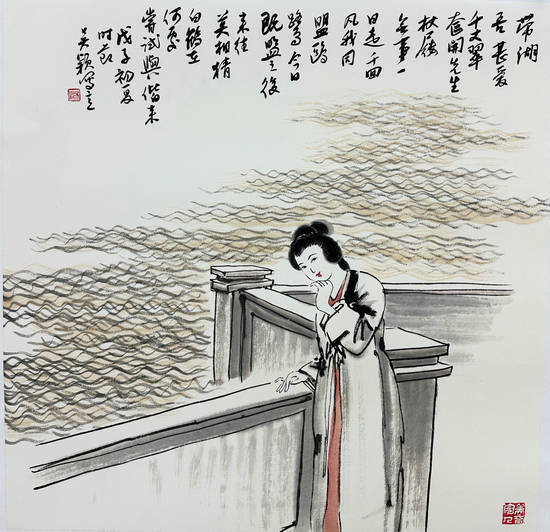 带湖
吾甚爱
千丈翠
奩開先生
杖屨
無事一
日走千回
凡我同
盟鸥
鹭今日
既盟之後
来往
莫相猜
白鹤在
何處
嘗试與偕来
戊子初夏
时节
吴颖写意